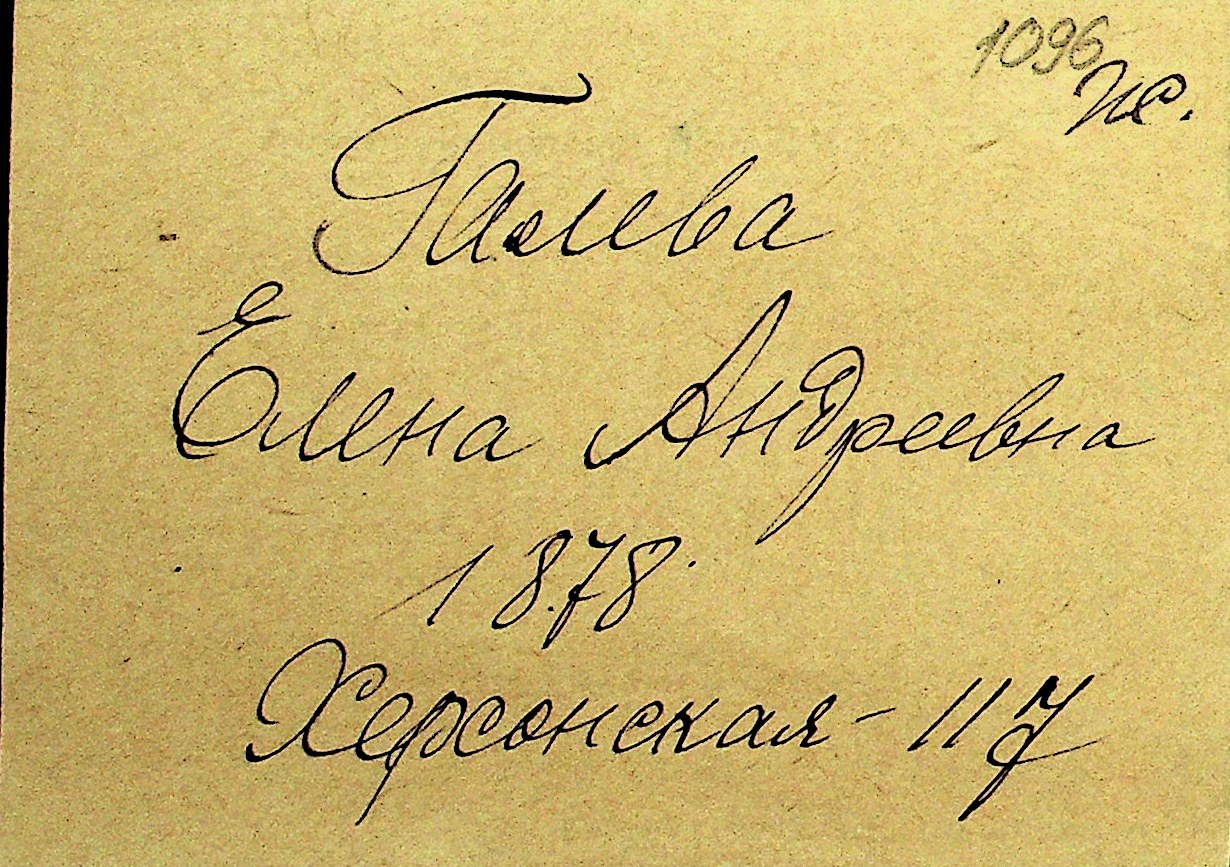 1096
Галева
Елена Андреевна
1878
Херсонская - 117